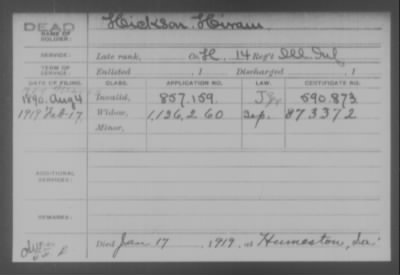 DEAD
NAME OF SOLDIER: Hickson Hiram
SERVICE: Late rank, Co. H, 14 Reg't Ill Inf
TERM OF SERVICE: Enlisted , 1 Discharged , 1
DATE OF FILING. CLASS. APPLICATION NO. LAW. CERTIFICATE NO.
1890 Aug 4 Invalid, 857.159. 590.873
1919 Feb 17, Widow, 1,136,260 Sep. 873372
Minor,
ADDITIONAL SERVICES:
REMARKS:
Died Jan 17, 1919, at Humeston, Ia.